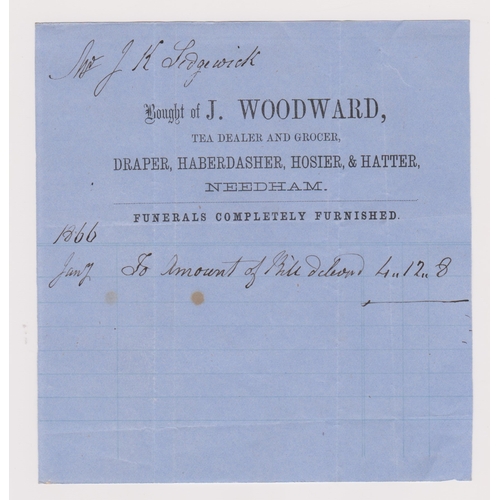 Mr J K Sedgewick
Bought of J. WOODWARD,
TEA DEALER AND GROCER,
DRAPER, HABERDASHER, HOSIER, & HATTER,
NEEDHAM.
FUNERALS COMPLETELY FURNISHED.
1866
Jany To Amount of Bill delverd 4„12„8